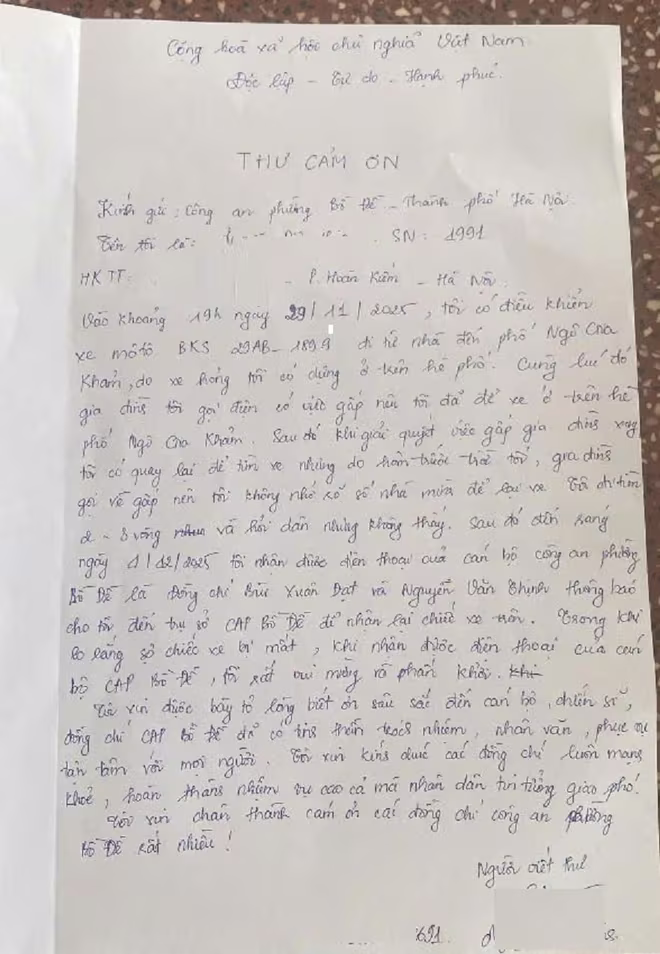 Cộng hoà xã hội chủ nghĩa Việt Nam
Độc lập - Tự do - Hạnh phúc.
THƯ CẢM ƠN
Kính gửi: Công an phường Bồ Đề - Thành phố Hà Nội.
Tên tôi là: SN: 1991
HKTT: - P. Hoàn Kiếm - Hà Nội.
Vào khoảng 19h ngày 29/11/2025, tôi có điều khiển
xe môtô BKS 29AB-1899 đi từ nhà đến phố Ngô Gia
Khảm, do xe hỏng tôi có dừng ở trên hè phố. Cùng lúc đó
gia đình tôi gọi điện có việc gấp nên tôi đã để xe ở trên hè
phố Ngô Gia Khảm. Sau đó khi giải quyết việc gấp gia đình xong
tôi có quay lại để tìm xe nhưng do hôm trước trời tối, gia đình
gọi về gấp nên tôi không nhớ rõ số nhà mình để lại xe. Tôi đi tìm
2-3 vòng và hỏi dân nhưng không thấy. Sau đó đến sáng
ngày 1/12/2025 tôi nhận được điện thoại của cán bộ công an phường
Bồ Đề là đồng chí Bùi Xuân Đạt và Nguyễn Văn Thịnh thông báo
cho tôi đến trụ sở CAP Bồ Đề để nhận lại chiếc xe trên. Trong khi
lo lắng sợ chiếc xe bị mất, khi nhận được điện thoại của cán
bộ CAP Bồ Đề, tôi rất vui mừng và phấn khởi.
Tôi xin được bày tỏ lòng biết ơn sâu sắc đến cán bộ, chiến sĩ,
đồng chí CAP Bồ Đề đã có tinh thần trách nhiệm, nhân văn, phục vụ
tận tâm với mọi người. Tôi xin kính chúc các đồng chí luôn mạnh
khoẻ, hoàn thành nhiệm vụ cao cả mà nhân dân tin tưởng giao phó.
Tôi xin chân thành cảm ơn các đồng chí công an phường
Bồ Đề rất nhiều!
Người viết thư